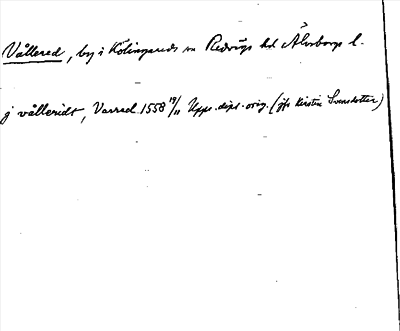 Vållered, by i Kölingareds sn Redvägs hd Älvsborgs l.
j vålleridt, Varned 1558 19/11 Upps. dipl. orig. (jfr Kirstin Svensdotter)